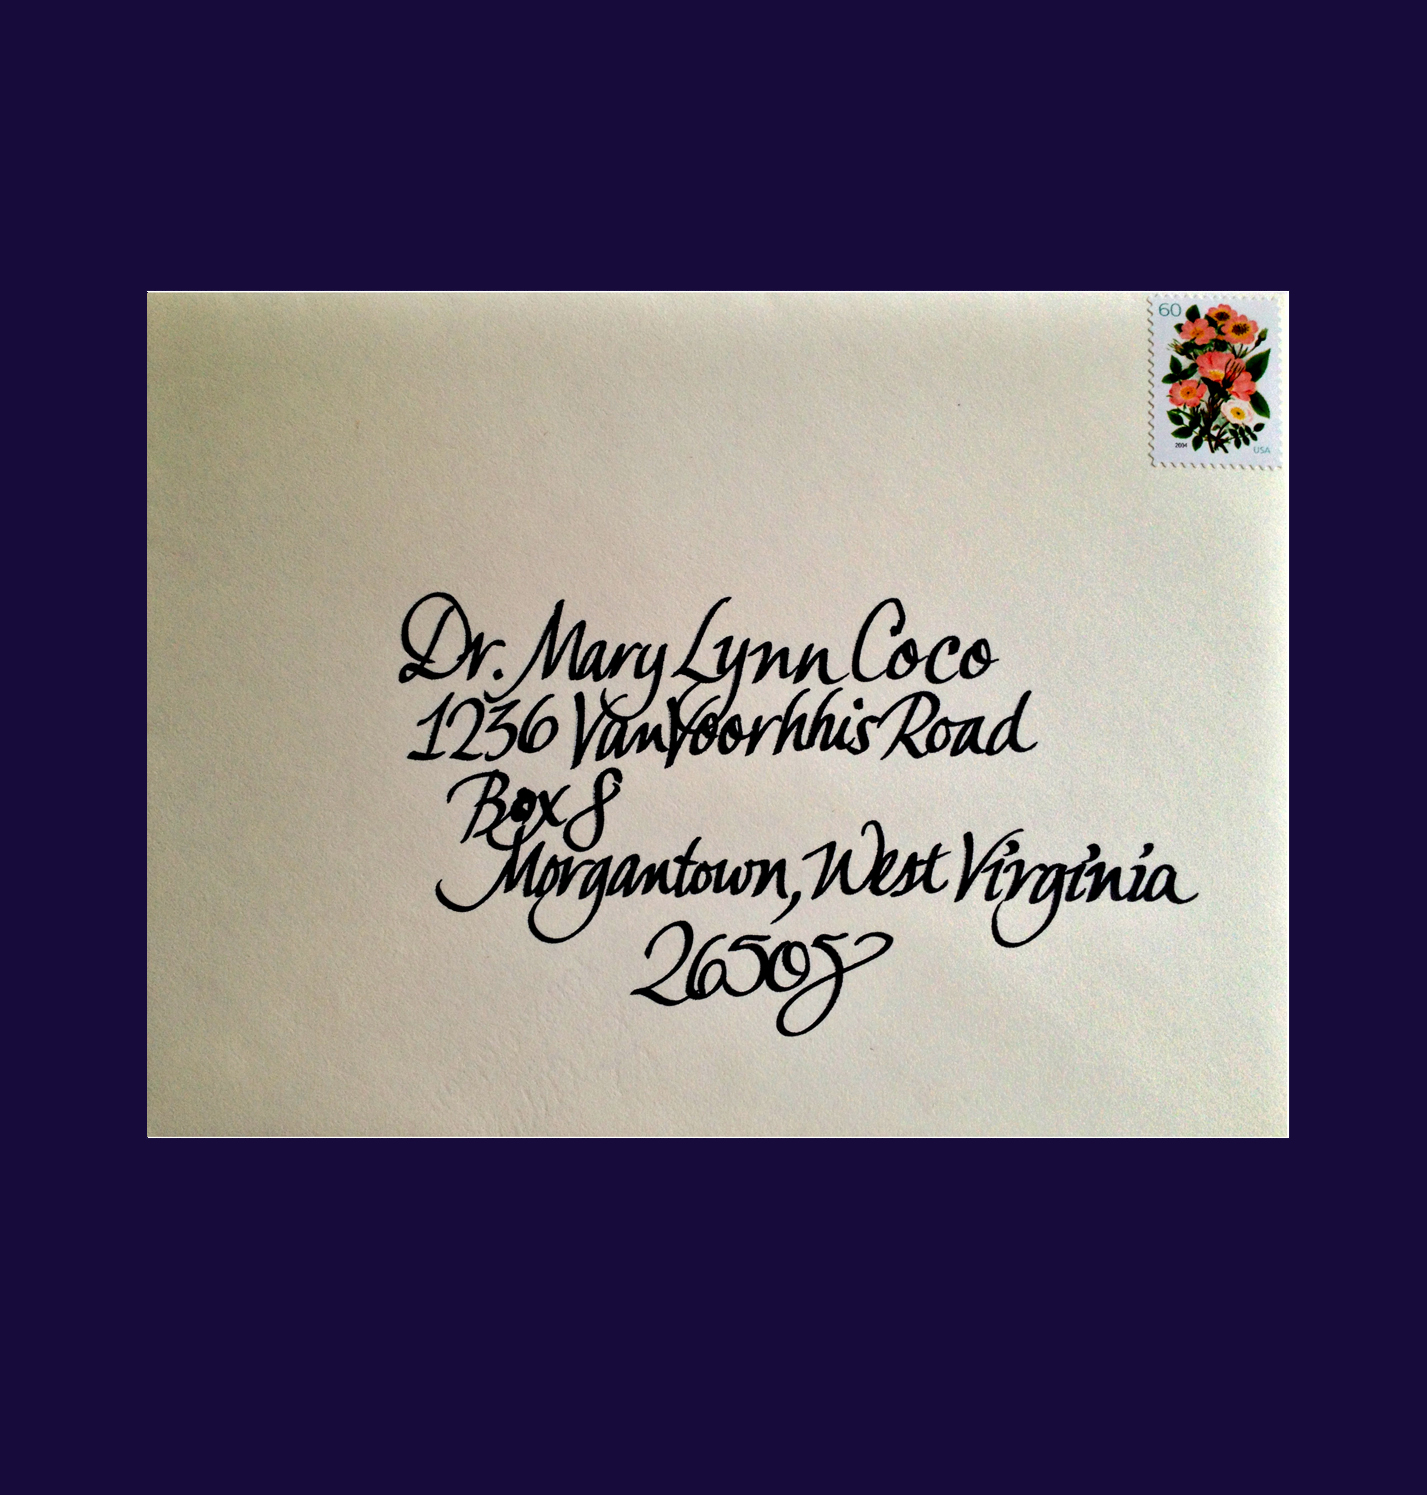 60
2004
USA
Dr. Mary Lynn Coco
1236 VanVoorhhis Road
Box 8
Morgantown, West Virginia
26505